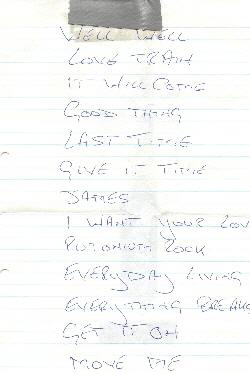 WELL WELL
LOVE TRAIN
IT WILL COME
GOOD THING
LAST TIME
GIVE IT TIME
JAMES
I WANT YOUR LOV
PLUTONIUM ROCK
EVERYDAY LIVING
EVERYTHING BREAKS
GET IT ON
MOVE ME